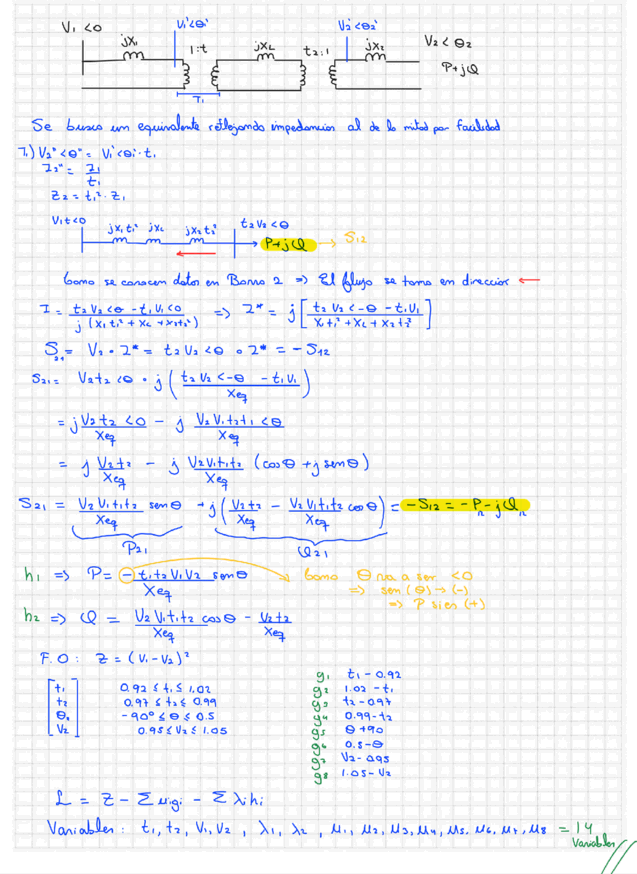 V₁ <0
jX₁
V₁'<θ₁'
1:t
jXL
t₂:1
V₂'<θ₂'
jX₂
V₂ <θ₂
P+jQ
T₁
Se busca un equivalente reflejando impedancias al de la mitad por facilidad
T₁) V₂" <θ" = V₁'<θ₁'·t₁
I₂" = I₁/t₁
Z₂ = t₁²·Z₁
V₁t<0
jX₁t₁² jXL jX₂t₂²
t₂V₂<θ
P+jQ → S₁₂
Como se conocen datos en Barra 2 => El flujo se toma en dirección ←
I = (t₂V₂<θ - t₁V₁<0)/(j(X₁t₁² + XL + X₂t₂²)) => I* = j[(t₂V₂<-θ - t₁V₁)/(X₁t₁² + XL + X₂t₂²)]
S₂₁ = V₂ · I* = t₂V₂<θ · I* = -S₁₂
S₂₁ = V₂t₂<θ · j((t₂V₂<-θ - t₁V₁)/Xeq)
= j V₂t₂<0/Xeq - j V₂V₁t₂t₁<θ/Xeq
= j V₂t₂/Xeq - j V₂V₁t₁t₂/Xeq (cosθ + j senθ)
S₂₁ = V₂V₁t₁t₂/Xeq senθ + j(V₂t₂/Xeq - V₂V₁t₁t₂/Xeq cosθ) = -S₁₂ = -P - jQ
P₂₁
Q₂₁
h₁ => P = - t₁t₂V₁V₂/Xeq senθ
Como θ va a ser <0
=> sen(θ) → (-)
=> P sien (+)
h₂ => Q = V₂V₁t₁t₂/Xeq cosθ - V₂t₂/Xeq
F.O: Z = (V₁-V₂)²
t₁ 0.92 ≤ t₁ ≤ 1.02
t₂ 0.97 ≤ t₂ ≤ 0.99
θ₂ -90° ≤ θ ≤ 0.5
V₂ 0.95 ≤ V₂ ≤ 1.05
g₁ t₁ - 0.92
g₂ 1.02 - t₁
g₃ t₂ - 0.97
g₄ 0.99 - t₂
g₅ θ + 90
g₆ 0.5 - θ
g₇ V₂ - 0.95
g₈ 1.05 - V₂
L = Z - Σμigi - Σλihi
Variables: t₁, t₂, V₁, V₂, λ₁, λ₂, μ₁, μ₂, μ₃, μ₄, μ₅, μ₆, μ₇, μ₈ = 14
Variables